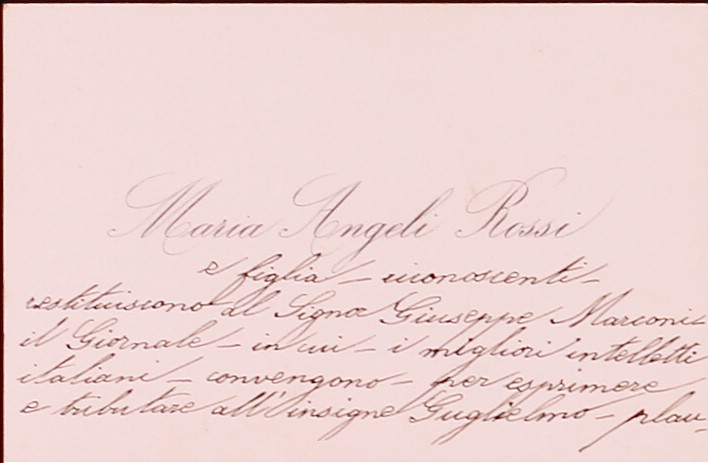 Maria Angeli Rossi
e figlia - riconoscenti -
restituiscono al Signor Giuseppe Marconi -
il Giornale - in cui - i migliori intelletti
italiani - convengono - per esprimere
e tributare all'insigne Guglielmo - plau-